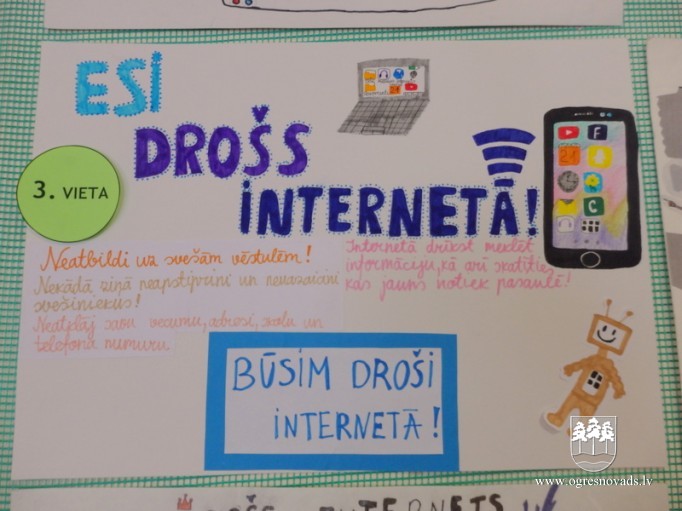 ESI
DROŠS
INTERNETĀ!
3. VIETA
Neatbildi uz svešām vēstulēm!
Nekādā ziņā neapstiprini un neuzaicini
svešiniekus!
Neatklāj savu vecumu, adresi, skolu un
telefona numuru
Internetā drīkst meklēt
informāciju, kā arī skatīties
kas jauns notiek pasaulē!
21
F
21
C
BŪSIM DROŠI
INTERNETĀ!
www.ogresnovads.lv
INTERNETS